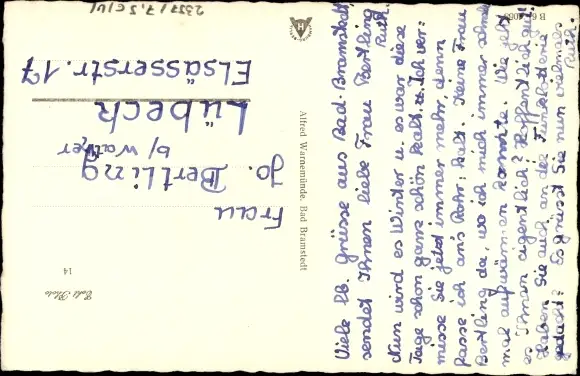 Viele lb. Grüsse aus Bad-Bramstedt,
sendet Ihnen liebe Frau Bertling
Ruth.
Nun wird es Winter u. es war diese
Tage schon ganz schön kalt. u. Ich ver:
misse Sie jetzt immer mehr, denn
fasse ich an's Rohr: kalt. Keine Frau
Bertling da, wo ich mich immer schnell
mal aufwärmen konnte. Wie geht
es Ihnen eigentlich? Hoffentlich gut!
Haben Sie auch an die Funklotterie
gedacht? Es grüsst Sie nun vielmals
Ruth.
Alfred Warnemünde, Bad Bramstedt
Frau
Jo. Bertling
b/
Lübeck
Elsässerstr. 17
Echt Photo
14